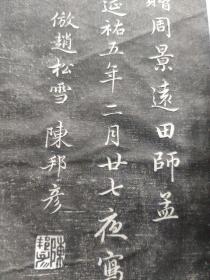 贈周景遠田師孟
延祐五年二月廿七夜寫
倣趙松雪 陳邦彥